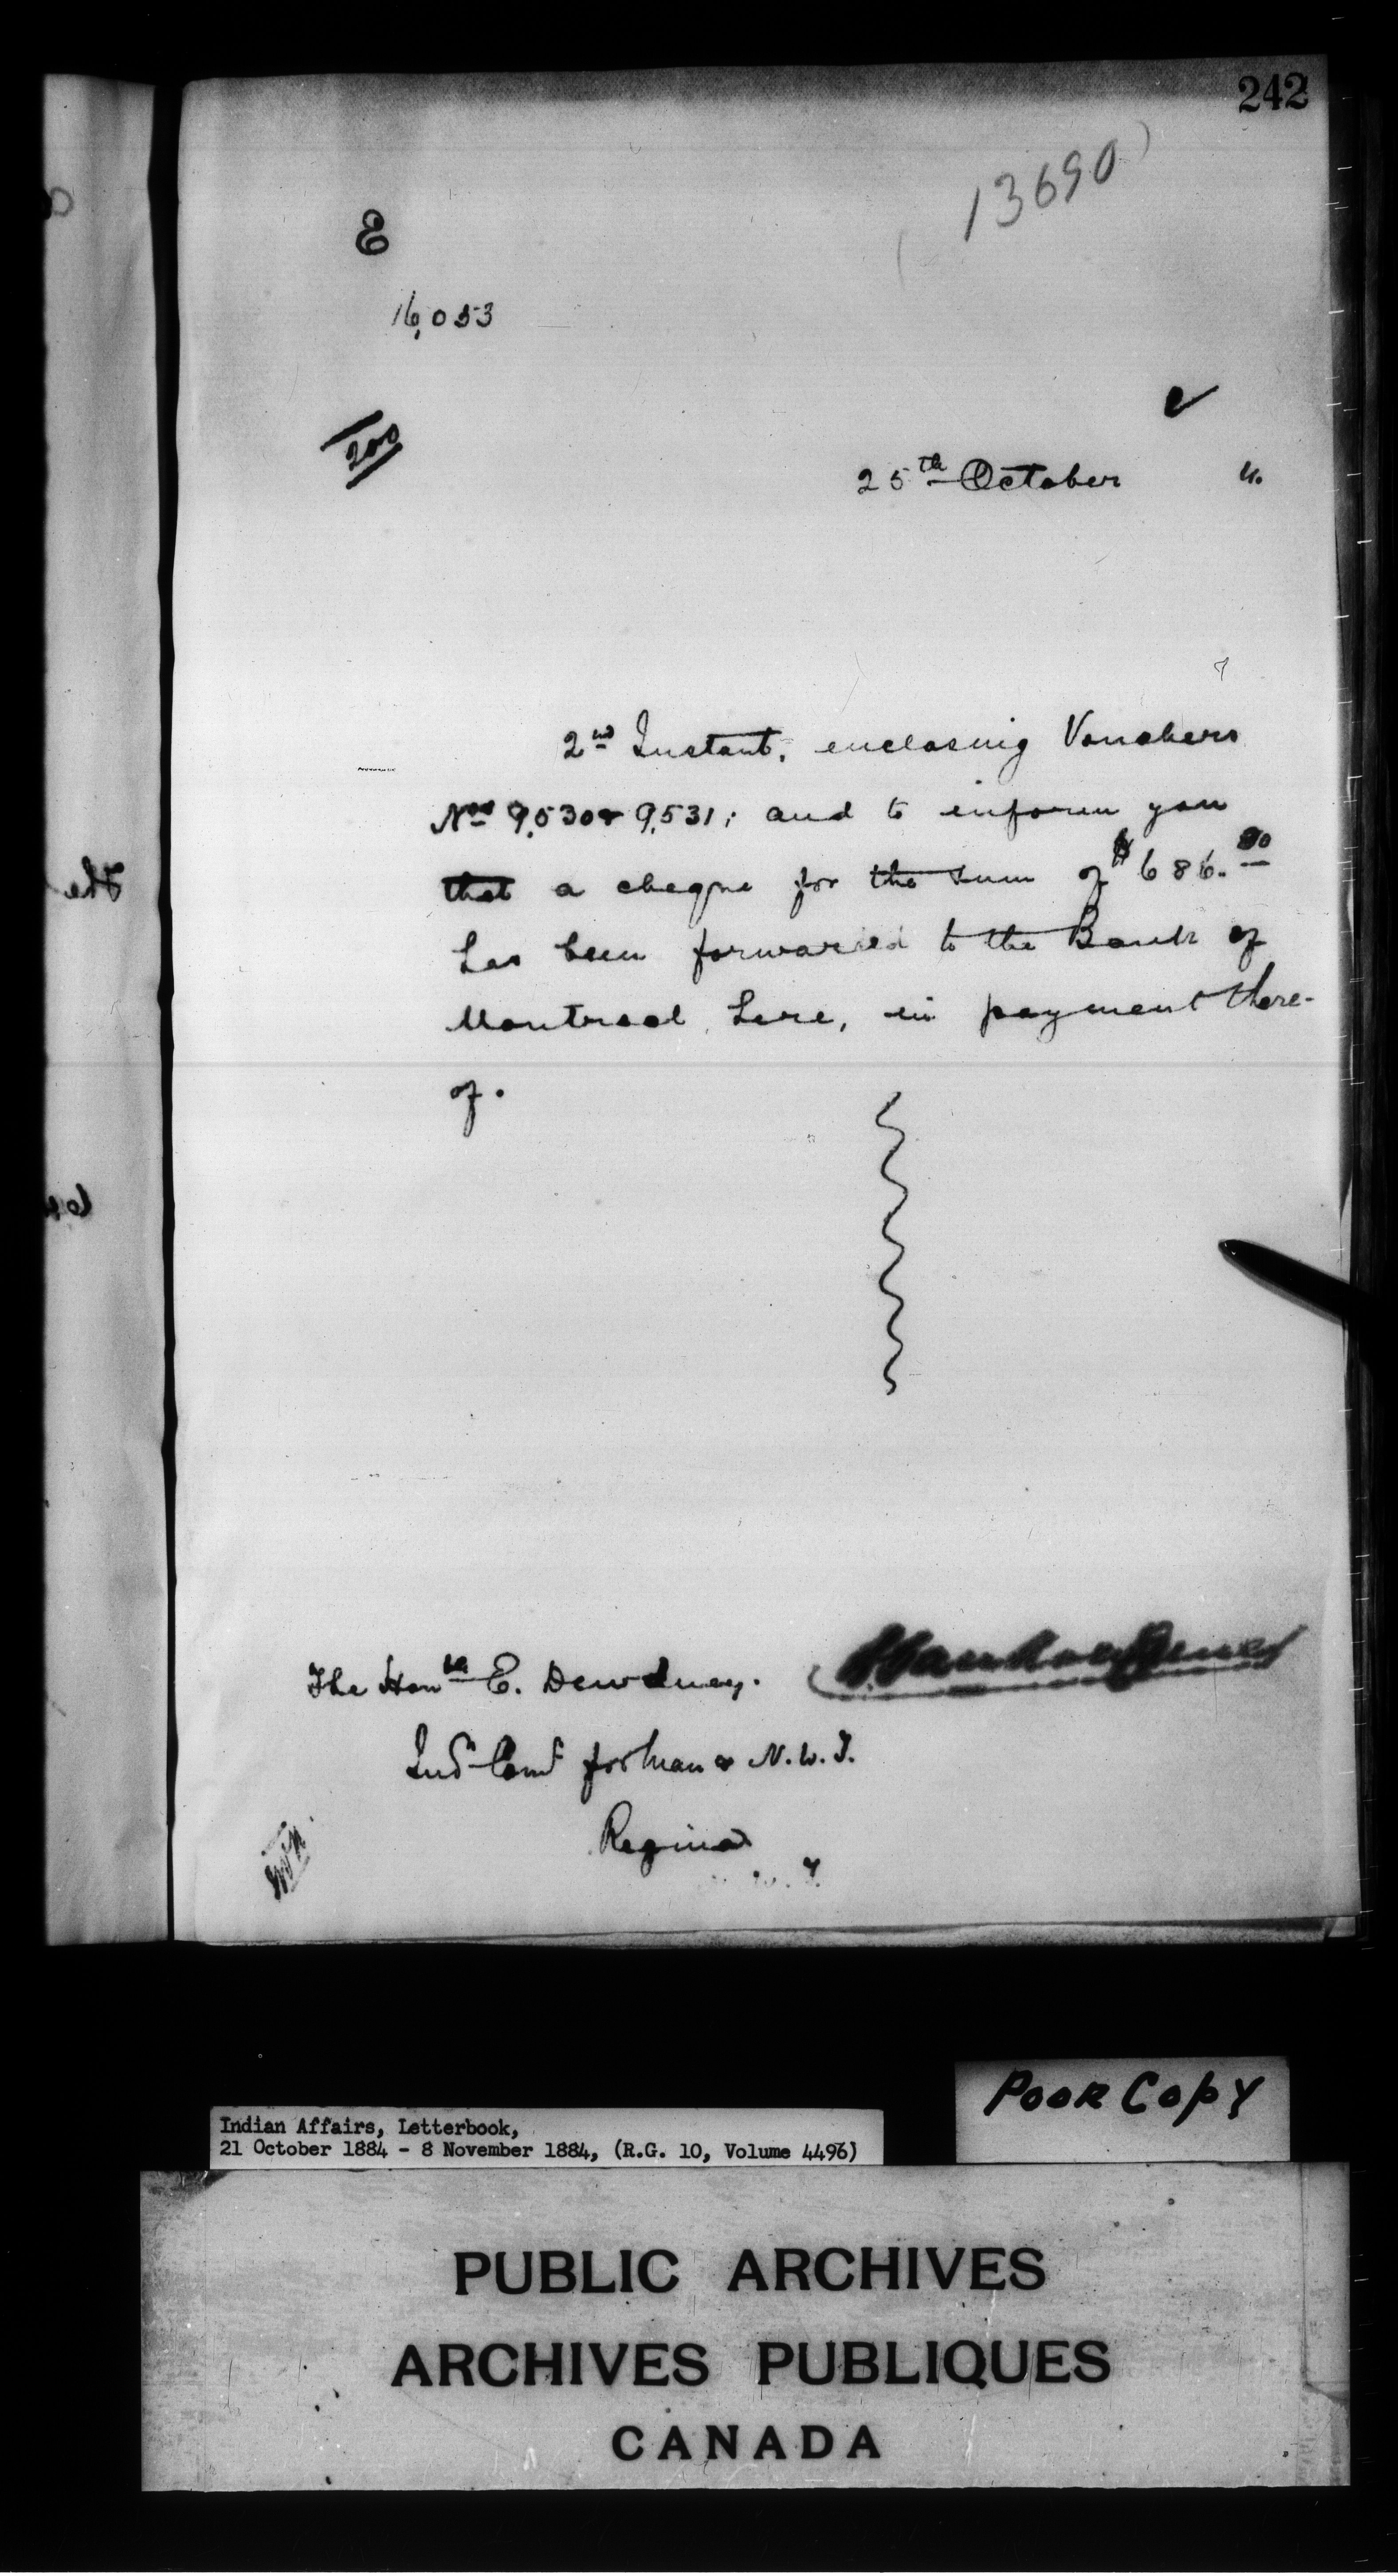 242
13690
E
16,053
200
25th October 4.
2nd Instant, enclosing Vouchers
Nos 9,530 & 9,531; and to inform you
that a cheque for the sum of $686.80
has been forwarded to the Bank of
Montreal here, in payment there-
of.
The Honble E. Dewdney.
Ind Comr for Man & N.W.T.
Regina
The
Poor Copy
Indian Affairs, Letterbook,
21 October 1884 - 8 November 1884, (R.G. 10, Volume 4496)
PUBLIC ARCHIVES
ARCHIVES PUBLIQUES
CANADA